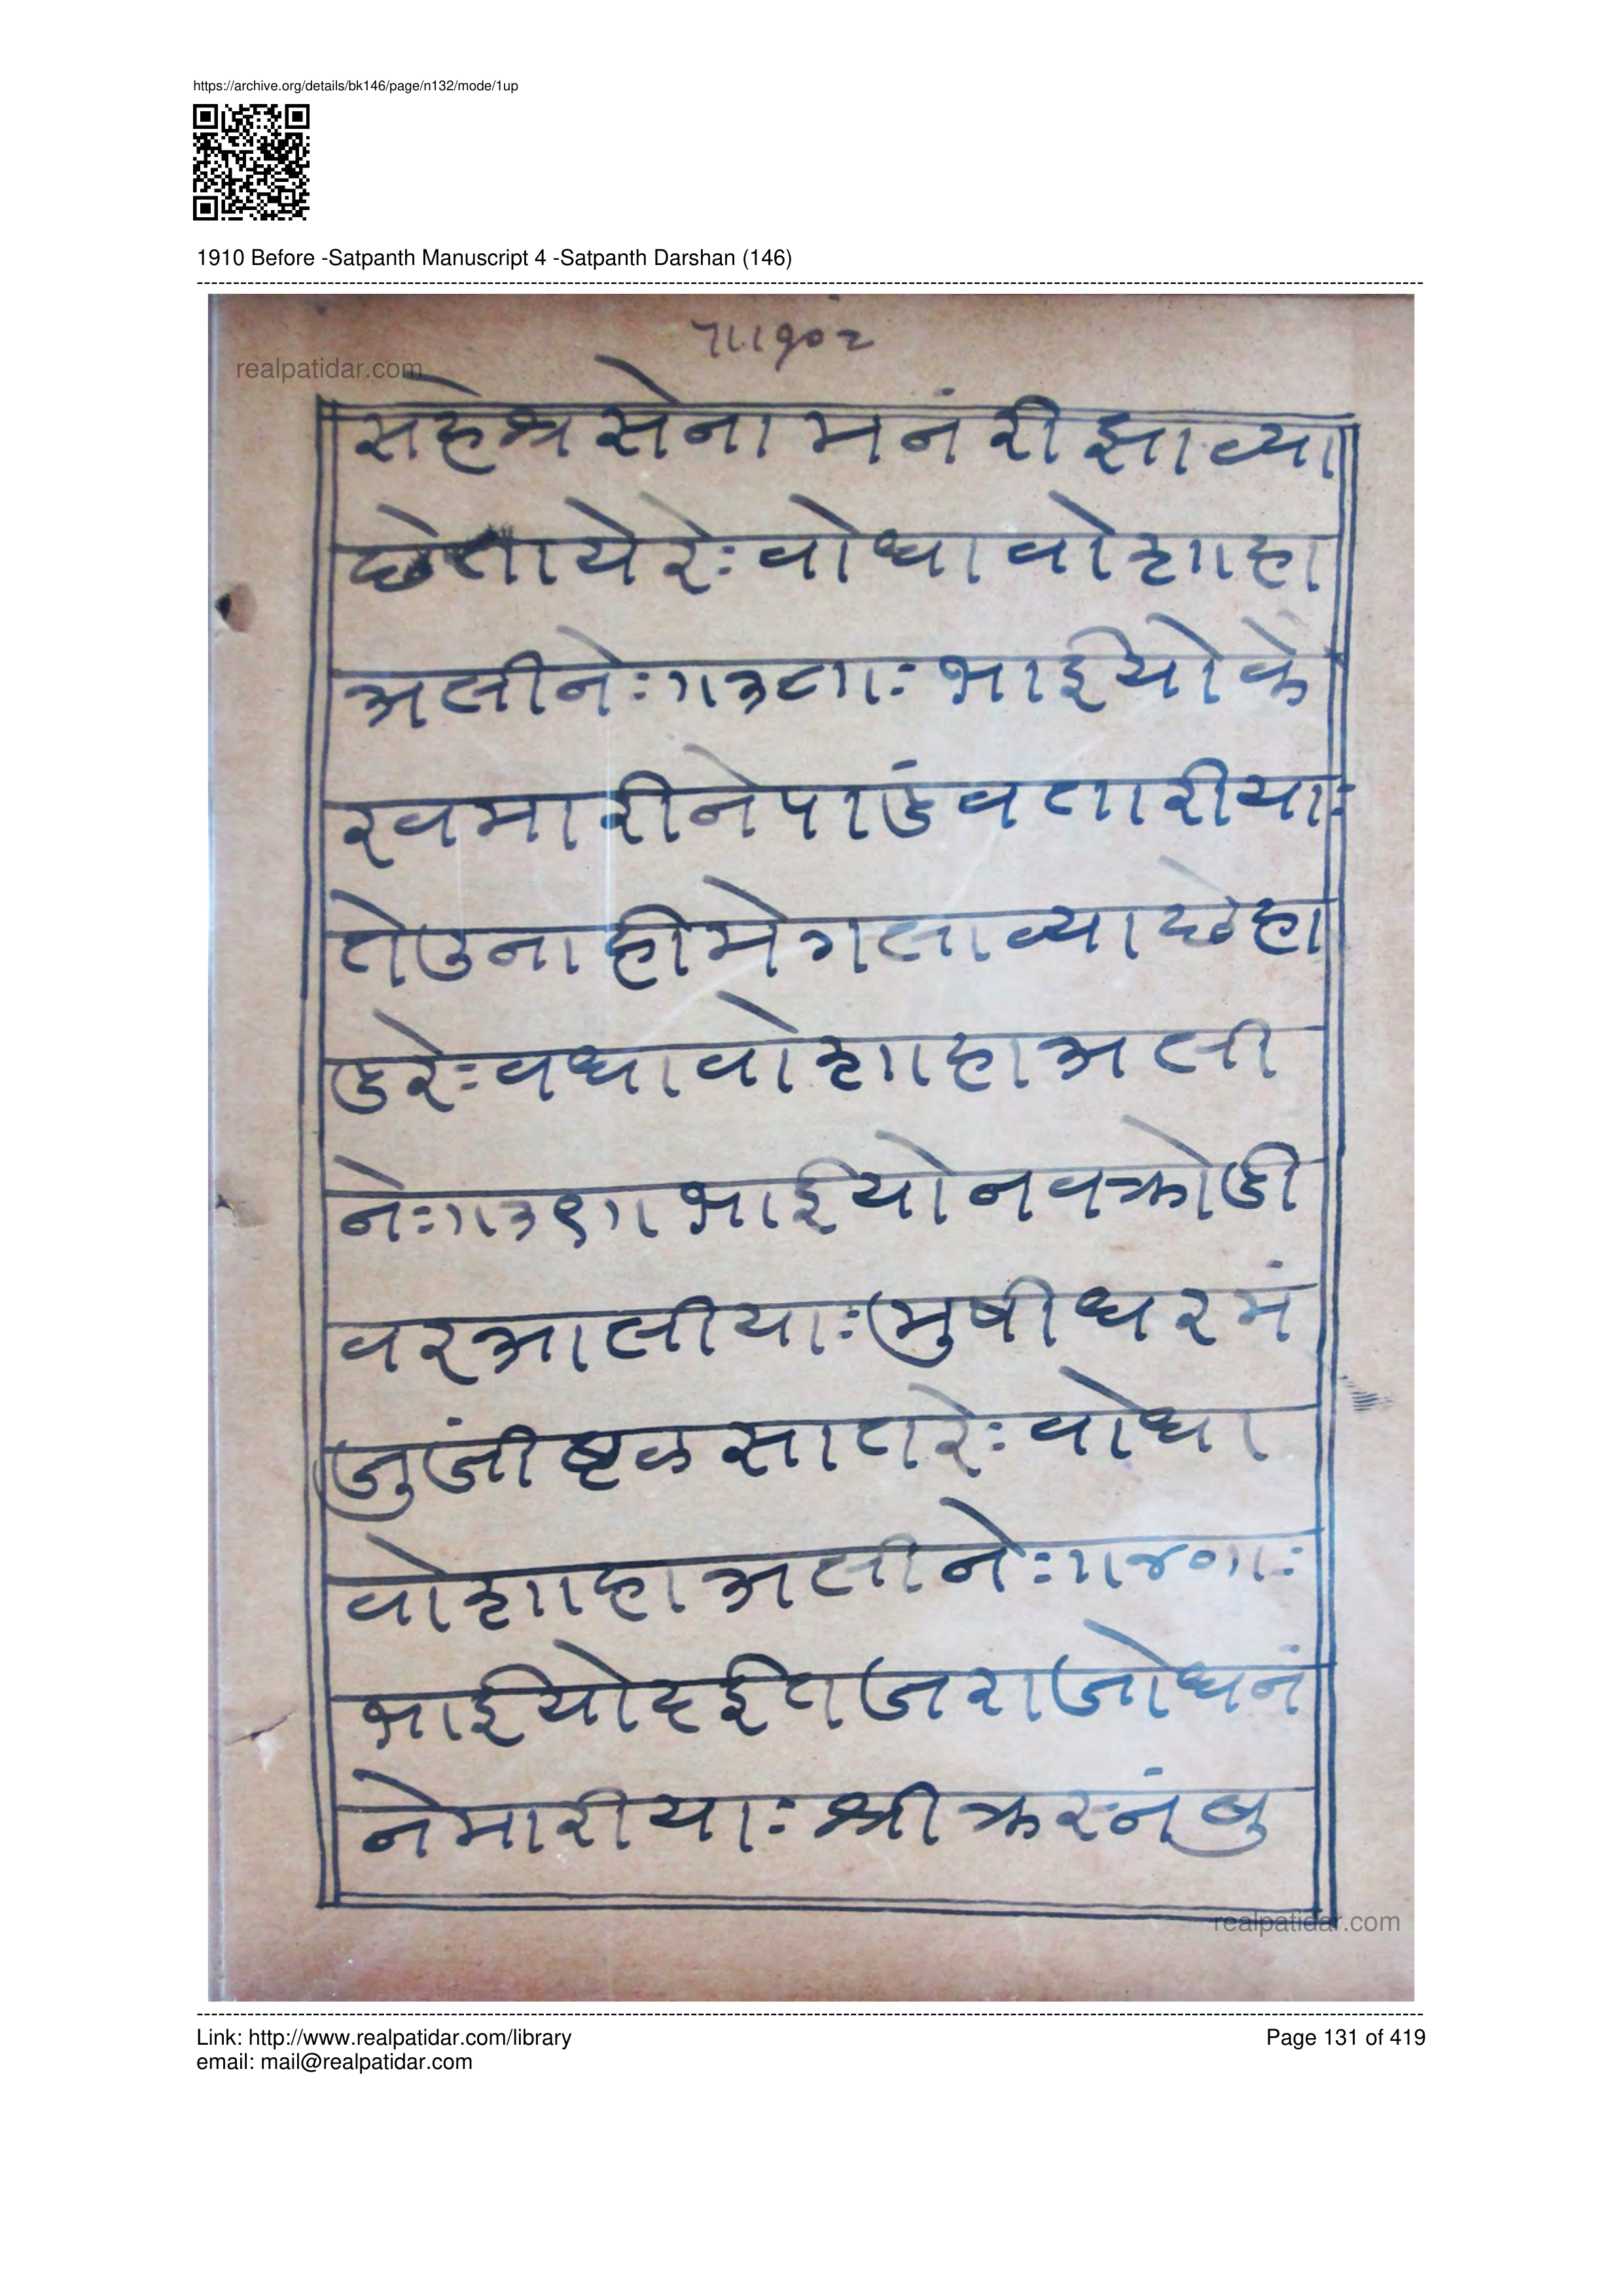 https://archive.org/details/bk146/page/n132/mode/1up
1910 Before -Satpanth Manuscript 4 -Satpanth Darshan (146)
पा.१०२
realpatidar.com
सहेश्र सेना मनं रीझाव्या
छेताये रेः वोधा वो शाहा
अलीनेः ।।३८।।ः भाईयो के
रवमारीने पाडंव तारीयाः
तेउना हीमे गलाव्या छेहा
डरेः वधावो शाहा अली
नेः ।।३९।। भाईयो नव क्रोडी
वर आलीयाः मुषी धरमं
जुजीष्टल सातरेः वोधा
वो शाहा अलीनेः ।।४०।।ः
भाईयो दईत जराजोधनं
ने मारीयाः श्री क्रस्नं बु
realpatidar.com
Link: http://www.realpatidar.com/library
email: mail@realpatidar.com
Page 131 of 419